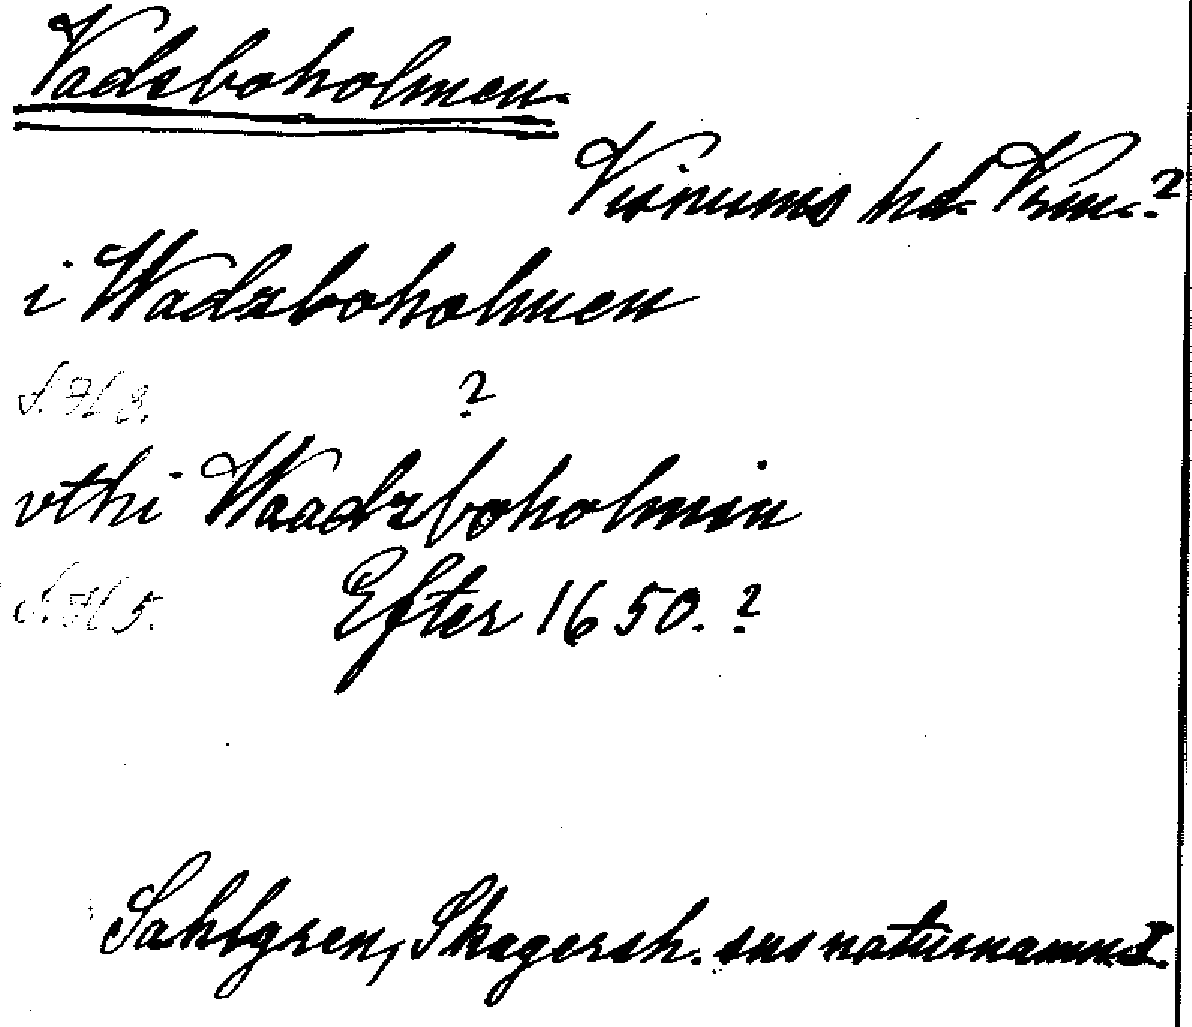 Vadsboholmen.
Visnums hd. Vrm.?
i Wadzboholmen
S.H 3. ?
vthi Waadzboholmin
S.H 5. Efter 1650.?
Sahlgren, Skagersh. sns naturnamn I.